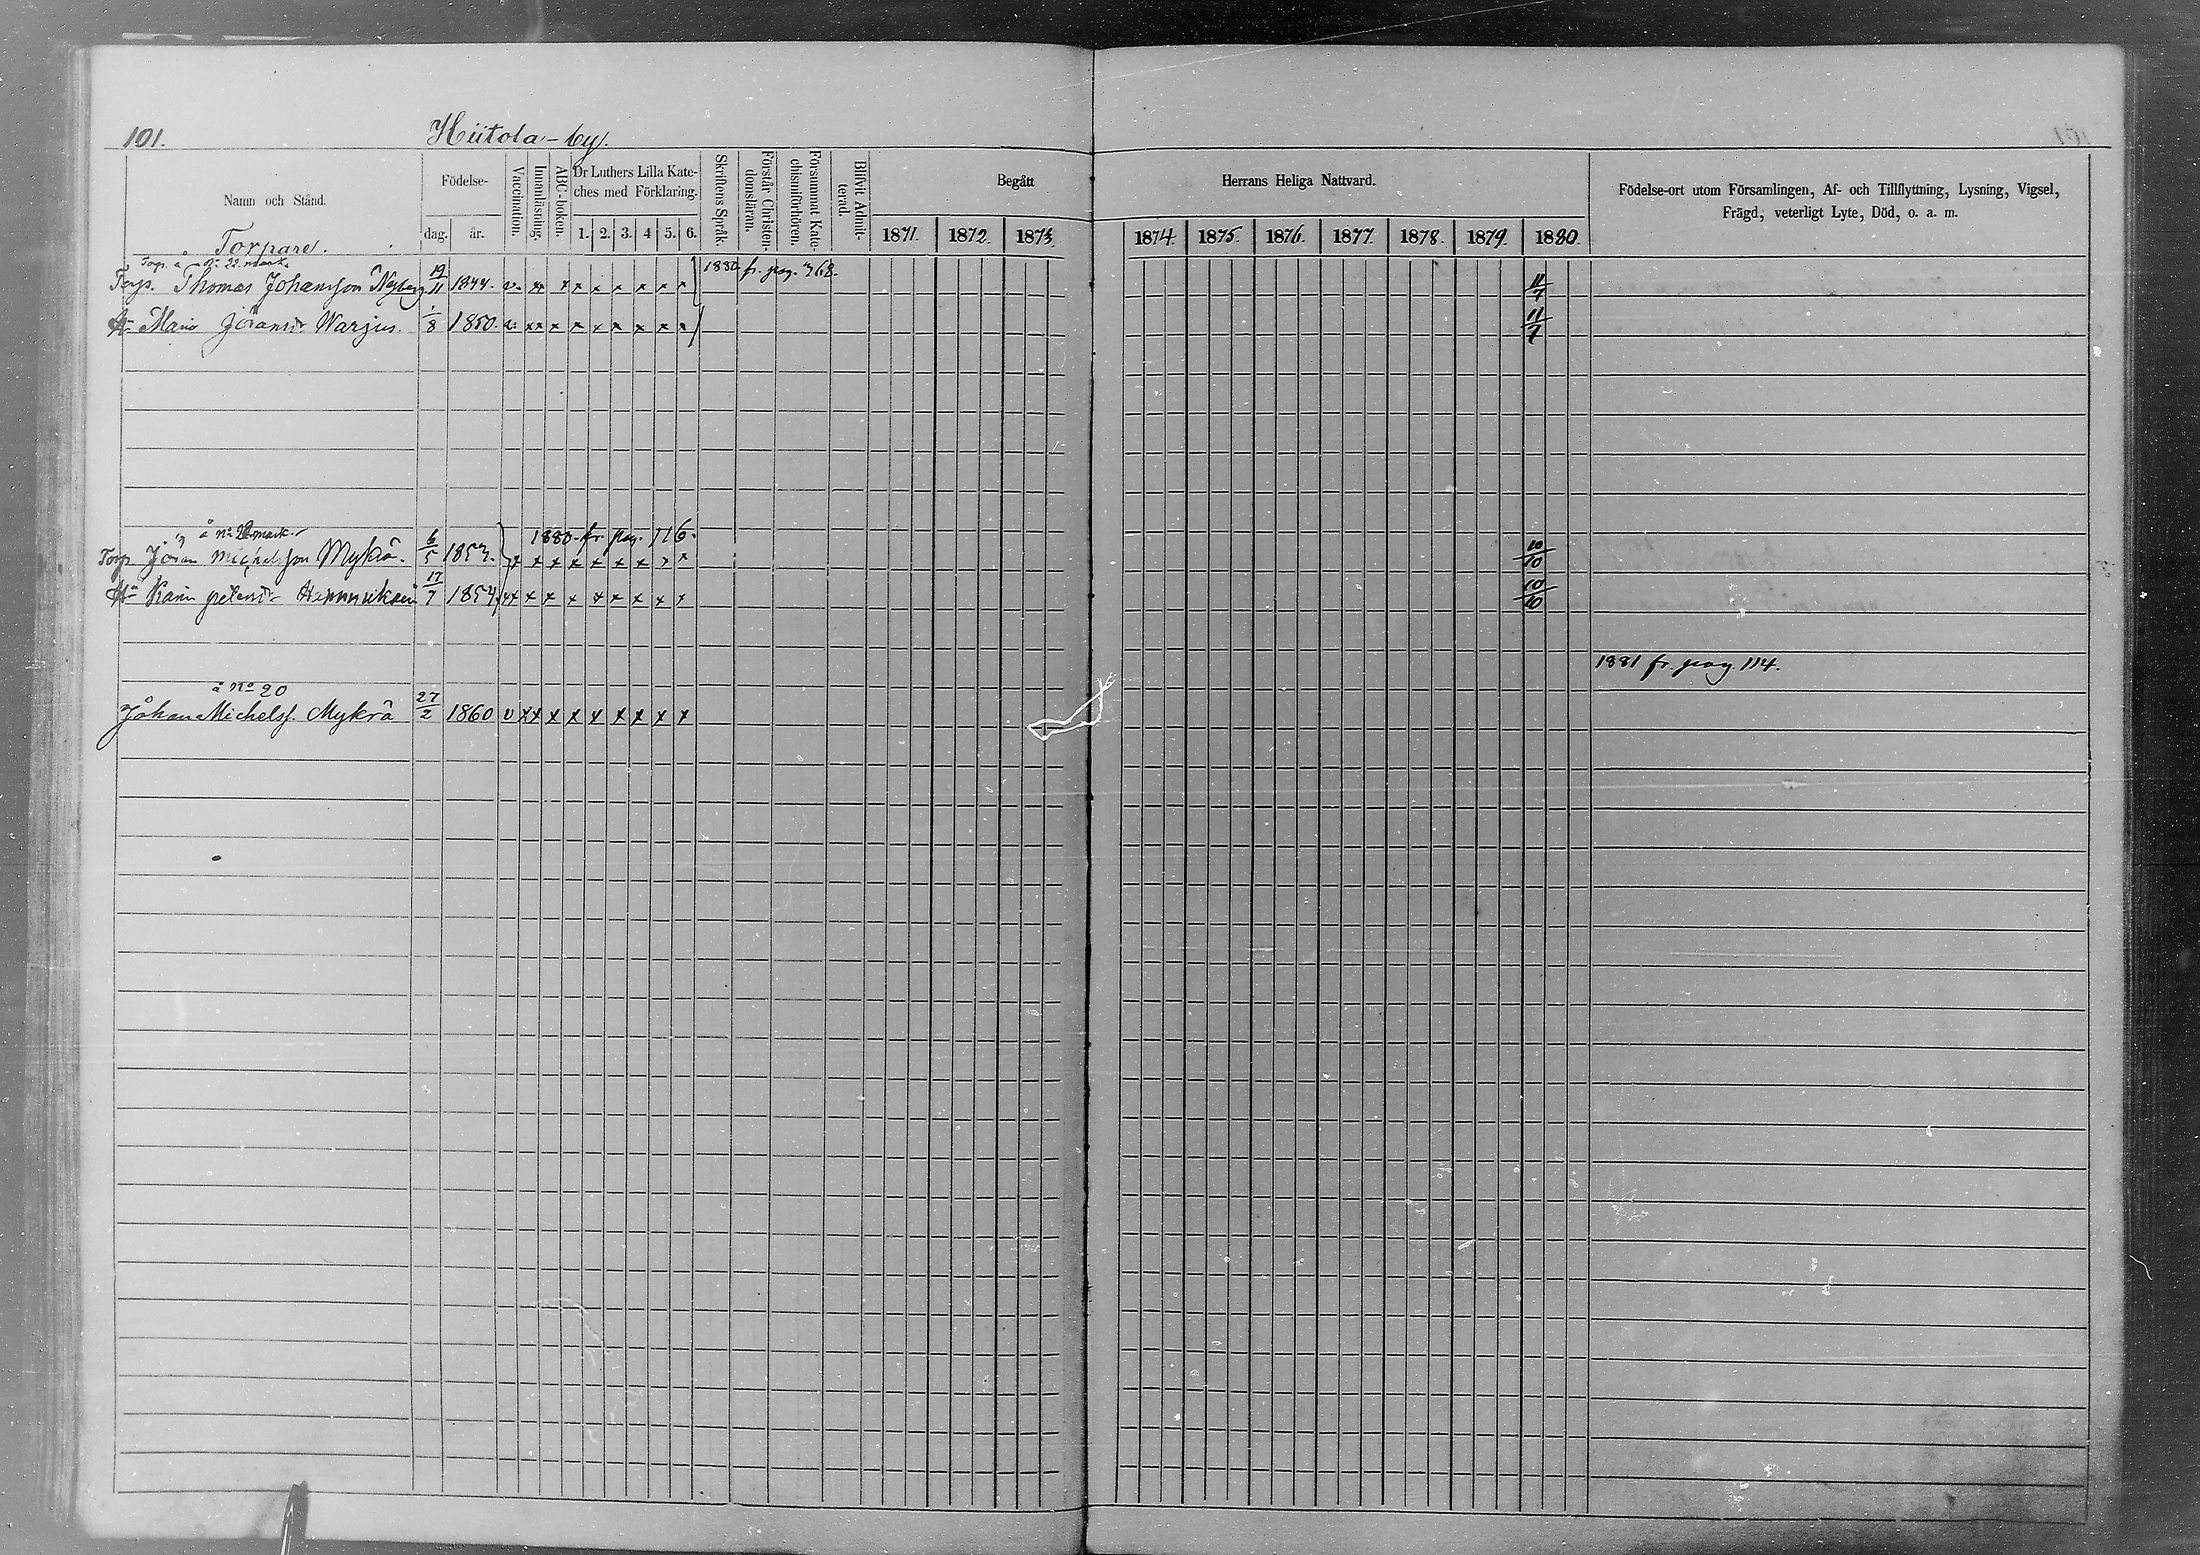 101.
Hiitola-by.
Namn och Stånd.
Födelse-
dag. år.
Vaccination.
Innanläsning.
ABC-boken.
Dr Luthers Lilla Kate-
ches med Förklaring.
1. 2. 3. 4 5. 6.
Skriftens Språk.
Förstår Christen-
domsläran.
Försummat Kate-
chismiförhören.
Blifvit Admit-
terad.
Begått Herrans Heliga Nattvard.
1871. 1872. 1873. 1874. 1875. 1876. 1877. 1878. 1879. 1880.
Födelse-ort utom Församlingen, Af- och Tillflyttning, Lysning, Vigsel,
Frägd, veterligt Lyte, Död, o. a. m.
Torpare.
Torp. å No 22 mark.
1880 fr. pag. 368.
Torp. Thomas Johansson Nyberg 19/11 1844. v. xx x x x x x x x 11/7
Maria Jöransdr Warjus. 1/8 1850. v. xx x x x x x x x 11/7
å No mark.
1880 fr. pag. 116.
Torp Jöran Michelsson Mykrå. 6/5 1853. x x x x x x x x x 10/10
Karin petersdr 17/7 1854 xx x x x x x x x x 10/10
1881 fr. pag. 114.
å No 20
Johan Michelss. Mykrå 27/2 1860 v xx x x x x x x x